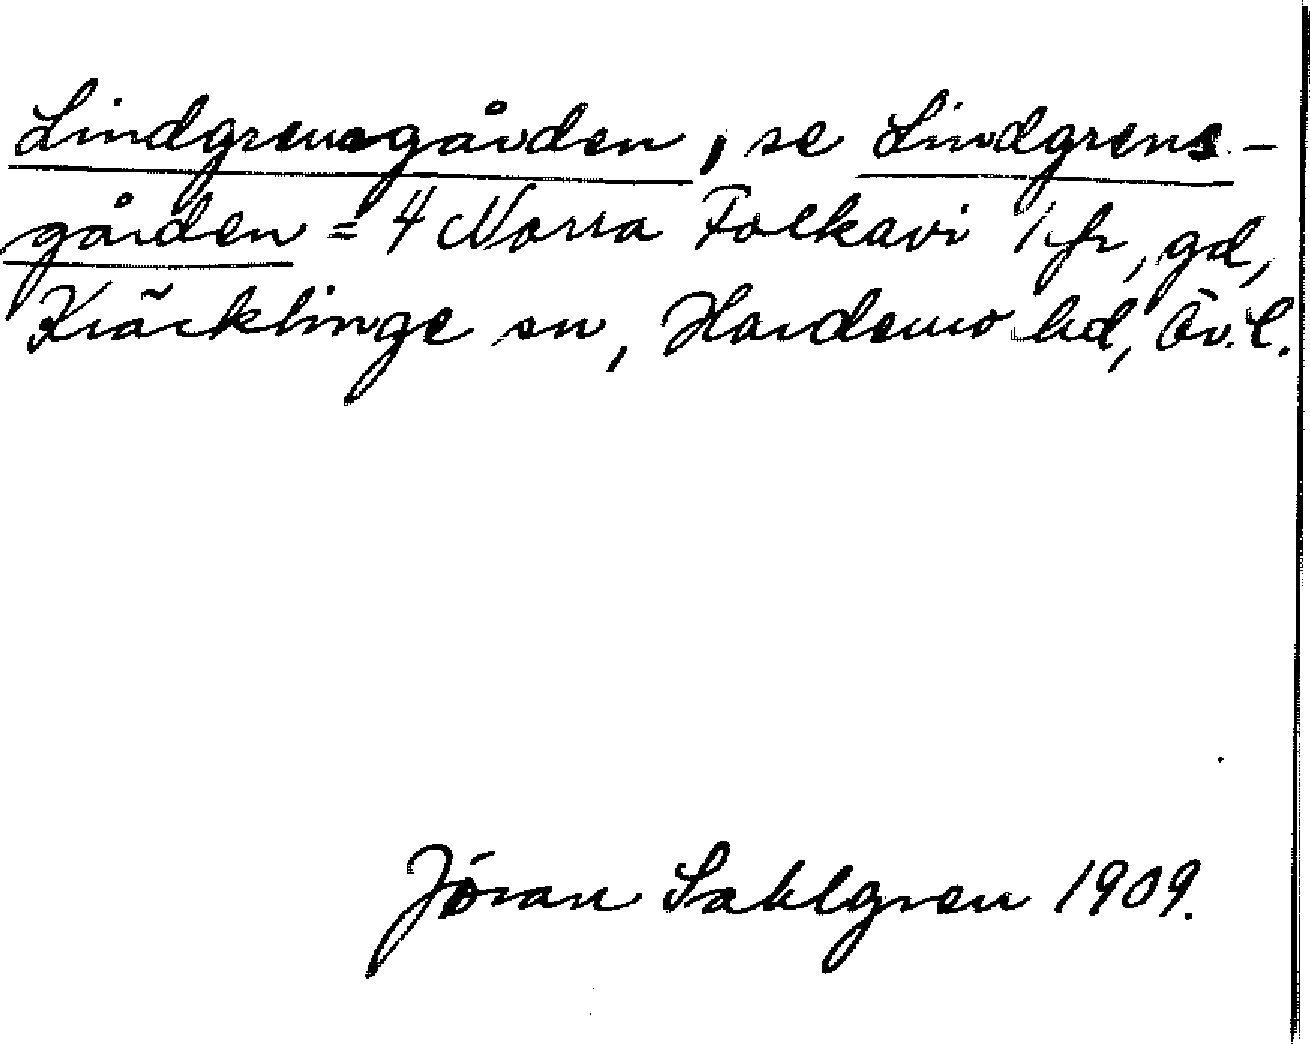 Lindgrensgården, se Lindgrens-
gården = 4 Norra Folkavi 1/fr, gd,
Kräcklinge sn, Hardemo hd, Ör.l.
Jöran Sahlgren 1909.